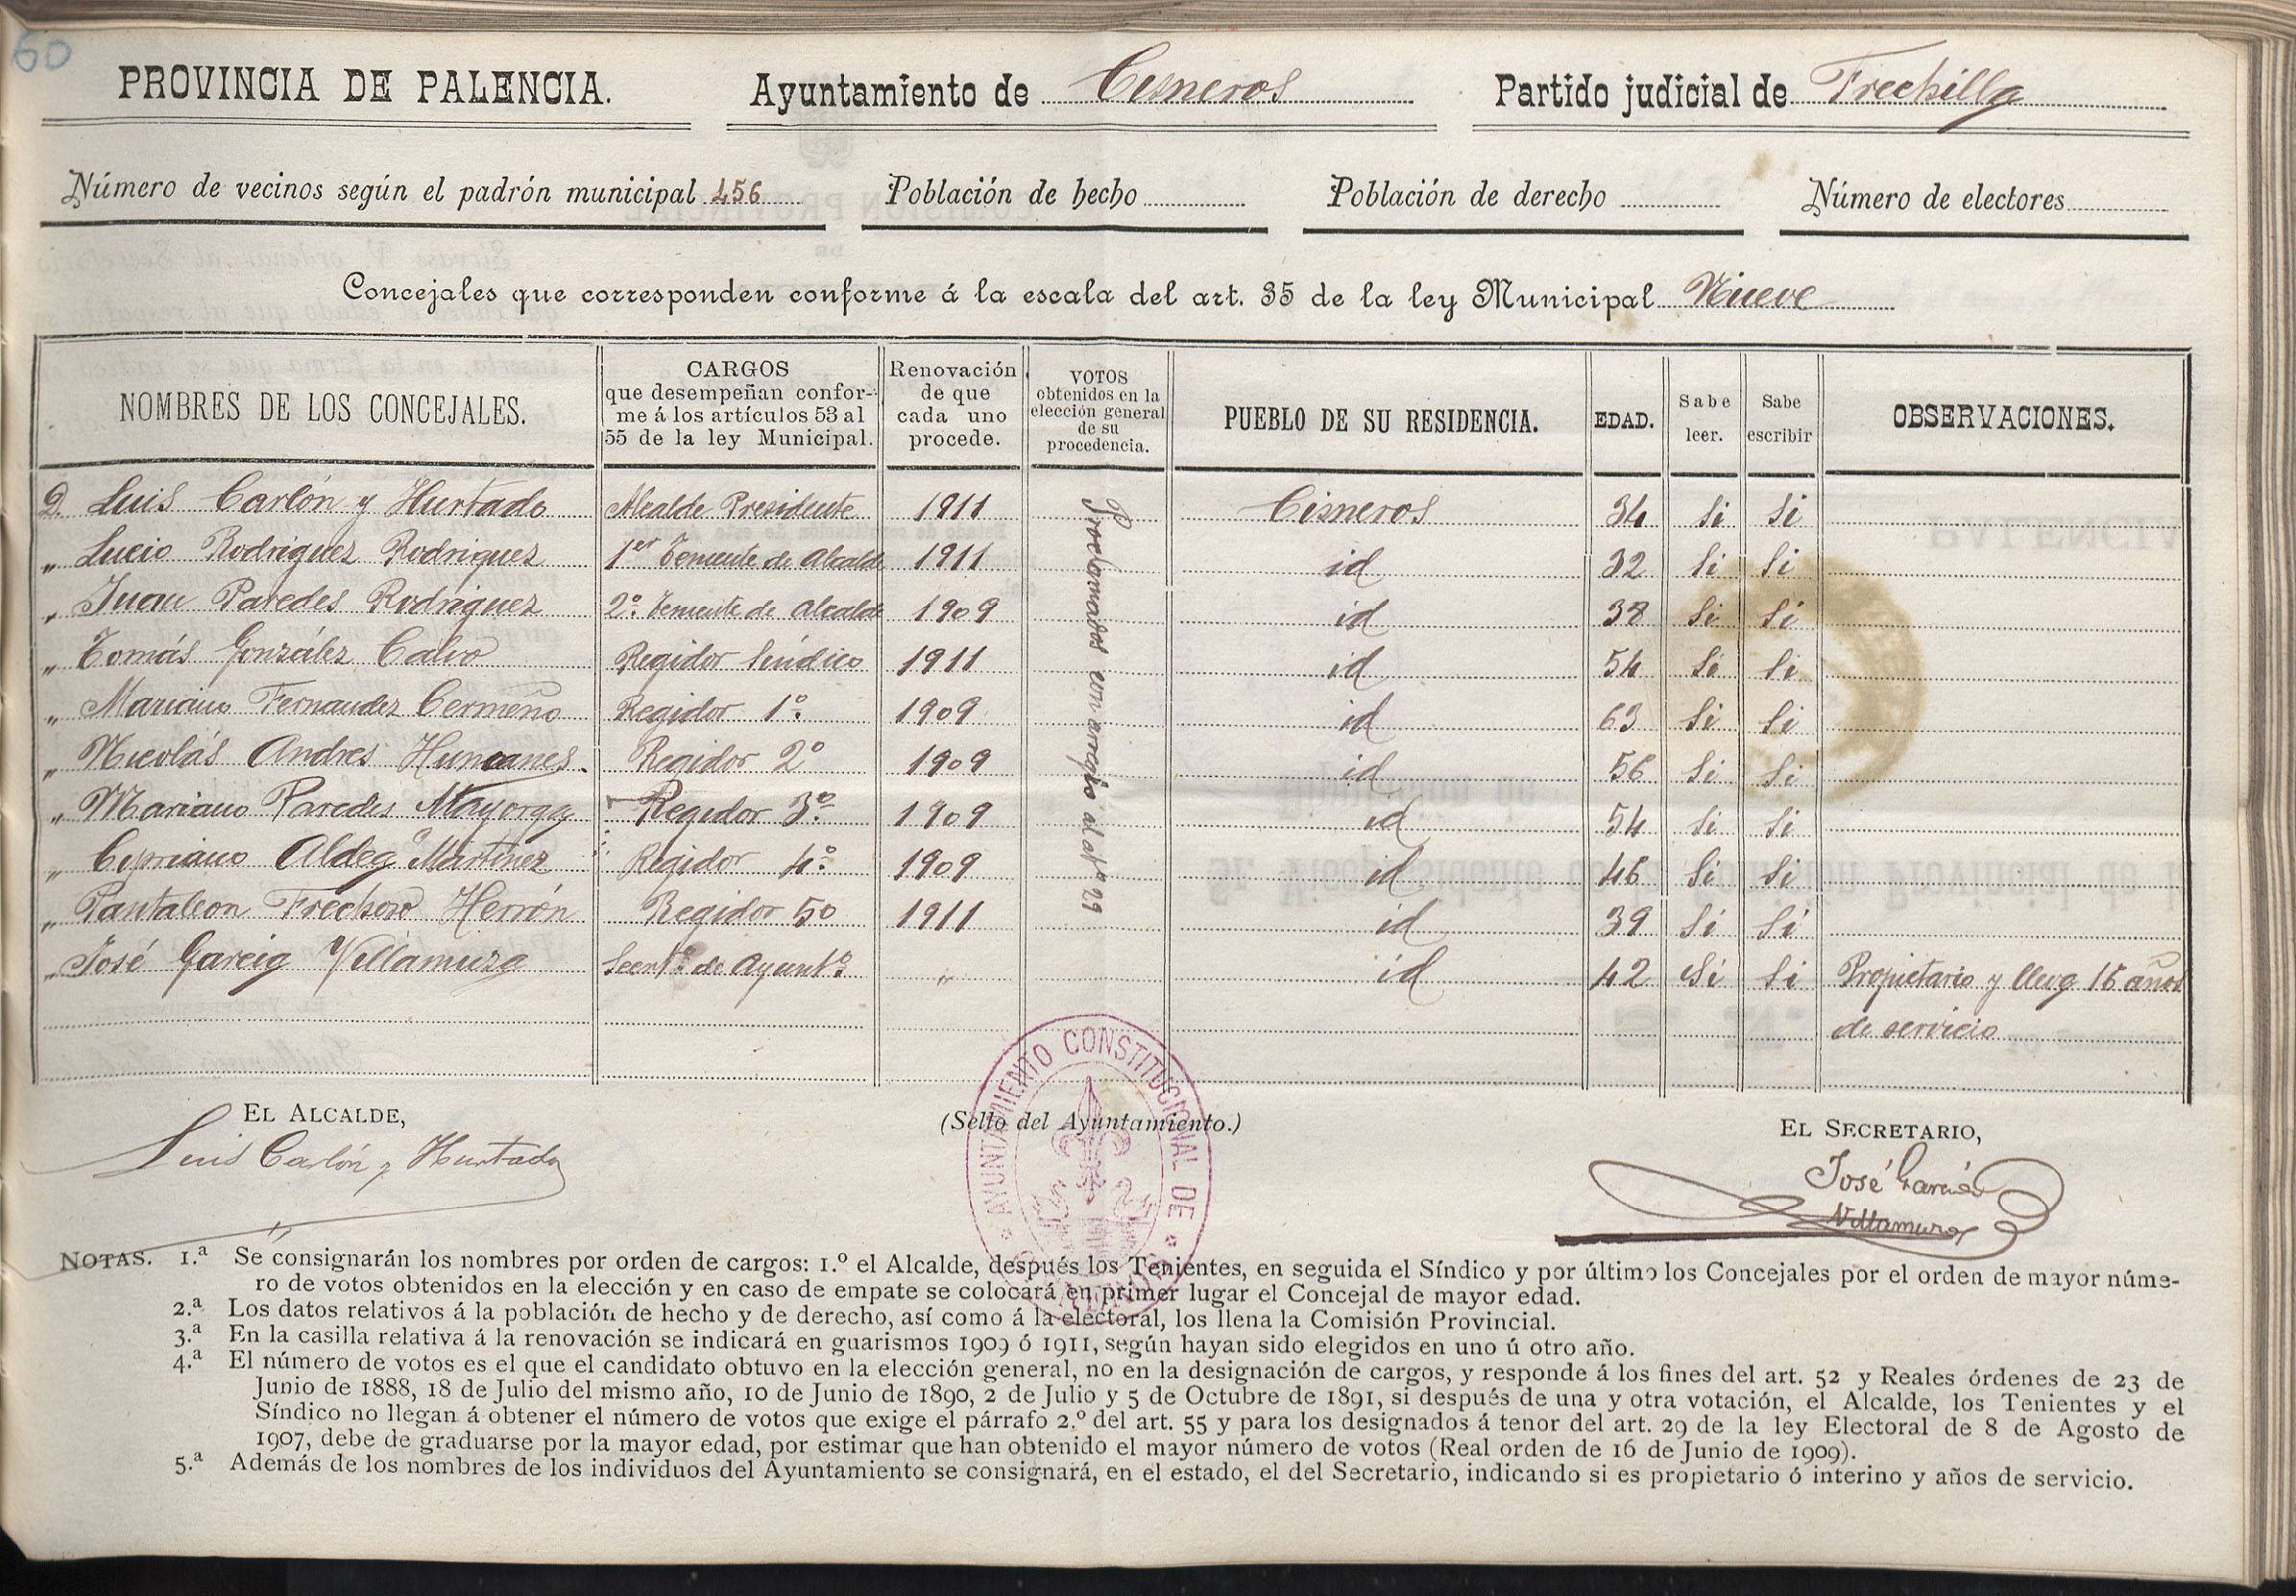 60
PROVINCIA DE PALENCIA. Ayuntamiento de Cisneros Partido judicial de Frechilla
Número de vecinos según el padrón municipal 456 Población de hecho Población de derecho Número de electores
Concejales que corresponden conforme á la escala del art. 35 de la ley Municipal Nueve
NOMBRES DE LOS CONCEJALES.
CARGOS
que desempeñan confor-
me á los artículos 53 al
55 de la ley Municipal.
Renovación
de que
cada uno
procede.
VOTOS
obtenidos en la
elección general
de su
procedencia.
PUEBLO DE SU RESIDENCIA.
EDAD.
Sabe
leer.
Sabe
escribir
OBSERVACIONES.
D. Luis Carlón y Hurtado Alcalde Presidente 1911 Cisneros 34 Si Si
" Lucio Rodriguez Rodriguez 1er Teniente de Alcalde 1911 id 32 Si Si
" Juan Paredes Rodriguez 2º. Teniente de Alcalde 1909 id 38 Si Si
" Tomás González Calvo Regidor Síndico 1911 id 54 Si Si
" Mariano Fernandez Cermeño Regidor 1º. 1909 id 63 Si Si
" Nicolás Andres Huncanes. Regidor 2º 1909 id 56 Si Si
" Mariano Paredes Mayorga Regidor 3º 1909 id 54 Si Si
" Cipriano Aldea Martinez Regidor 4º. 1909 id 46 Si Si
" Pantaleon Frechoso Herrón Regidor 5º 1911 id 39 Si Si
" José Garcia Villamuza Secretº. de Ayuntº. " id 42 Si Si Propietario y lleva 16 años
de servicio
Proclamados con arreglo al artº 29
EL ALCALDE,
Luis Carlón y Hurtado
(Sello del Ayuntamiento.)
AYUNTAMIENTO CONSTITUCIONAL DE
EL SECRETARIO,
José Garcia
Villamuza
NOTAS. 1.ª Se consignarán los nombres por orden de cargos: 1.º el Alcalde, después los Tenientes, en seguida el Síndico y por último los Concejales por el orden de mayor núme-
ro de votos obtenidos en la elección y en caso de empate se colocará en primer lugar el Concejal de mayor edad.
2.ª Los datos relativos á la población de hecho y de derecho, así como á la electoral, los llena la Comisión Provincial.
3.ª En la casilla relativa á la renovación se indicará en guarismos 1909 ó 1911, según hayan sido elegidos en uno ú otro año.
4.ª El número de votos es el que el candidato obtuvo en la elección general, no en la designación de cargos, y responde á los fines del art. 52 y Reales órdenes de 23 de
Junio de 1888, 18 de Julio del mismo año, 10 de Junio de 1890, 2 de Julio y 5 de Octubre de 1891, si después de una y otra votación, el Alcalde, los Tenientes y el
Síndico no llegan á obtener el número de votos que exige el párrafo 2.º del art. 55 y para los designados á tenor del art. 29 de la ley Electoral de 8 de Agosto de
1907, debe de graduarse por la mayor edad, por estimar que han obtenido el mayor número de votos (Real orden de 16 de Junio de 1909).
5.ª Además de los nombres de los individuos del Ayuntamiento se consignará, en el estado, el del Secretario, indicando si es propietario ó interino y años de servicio.